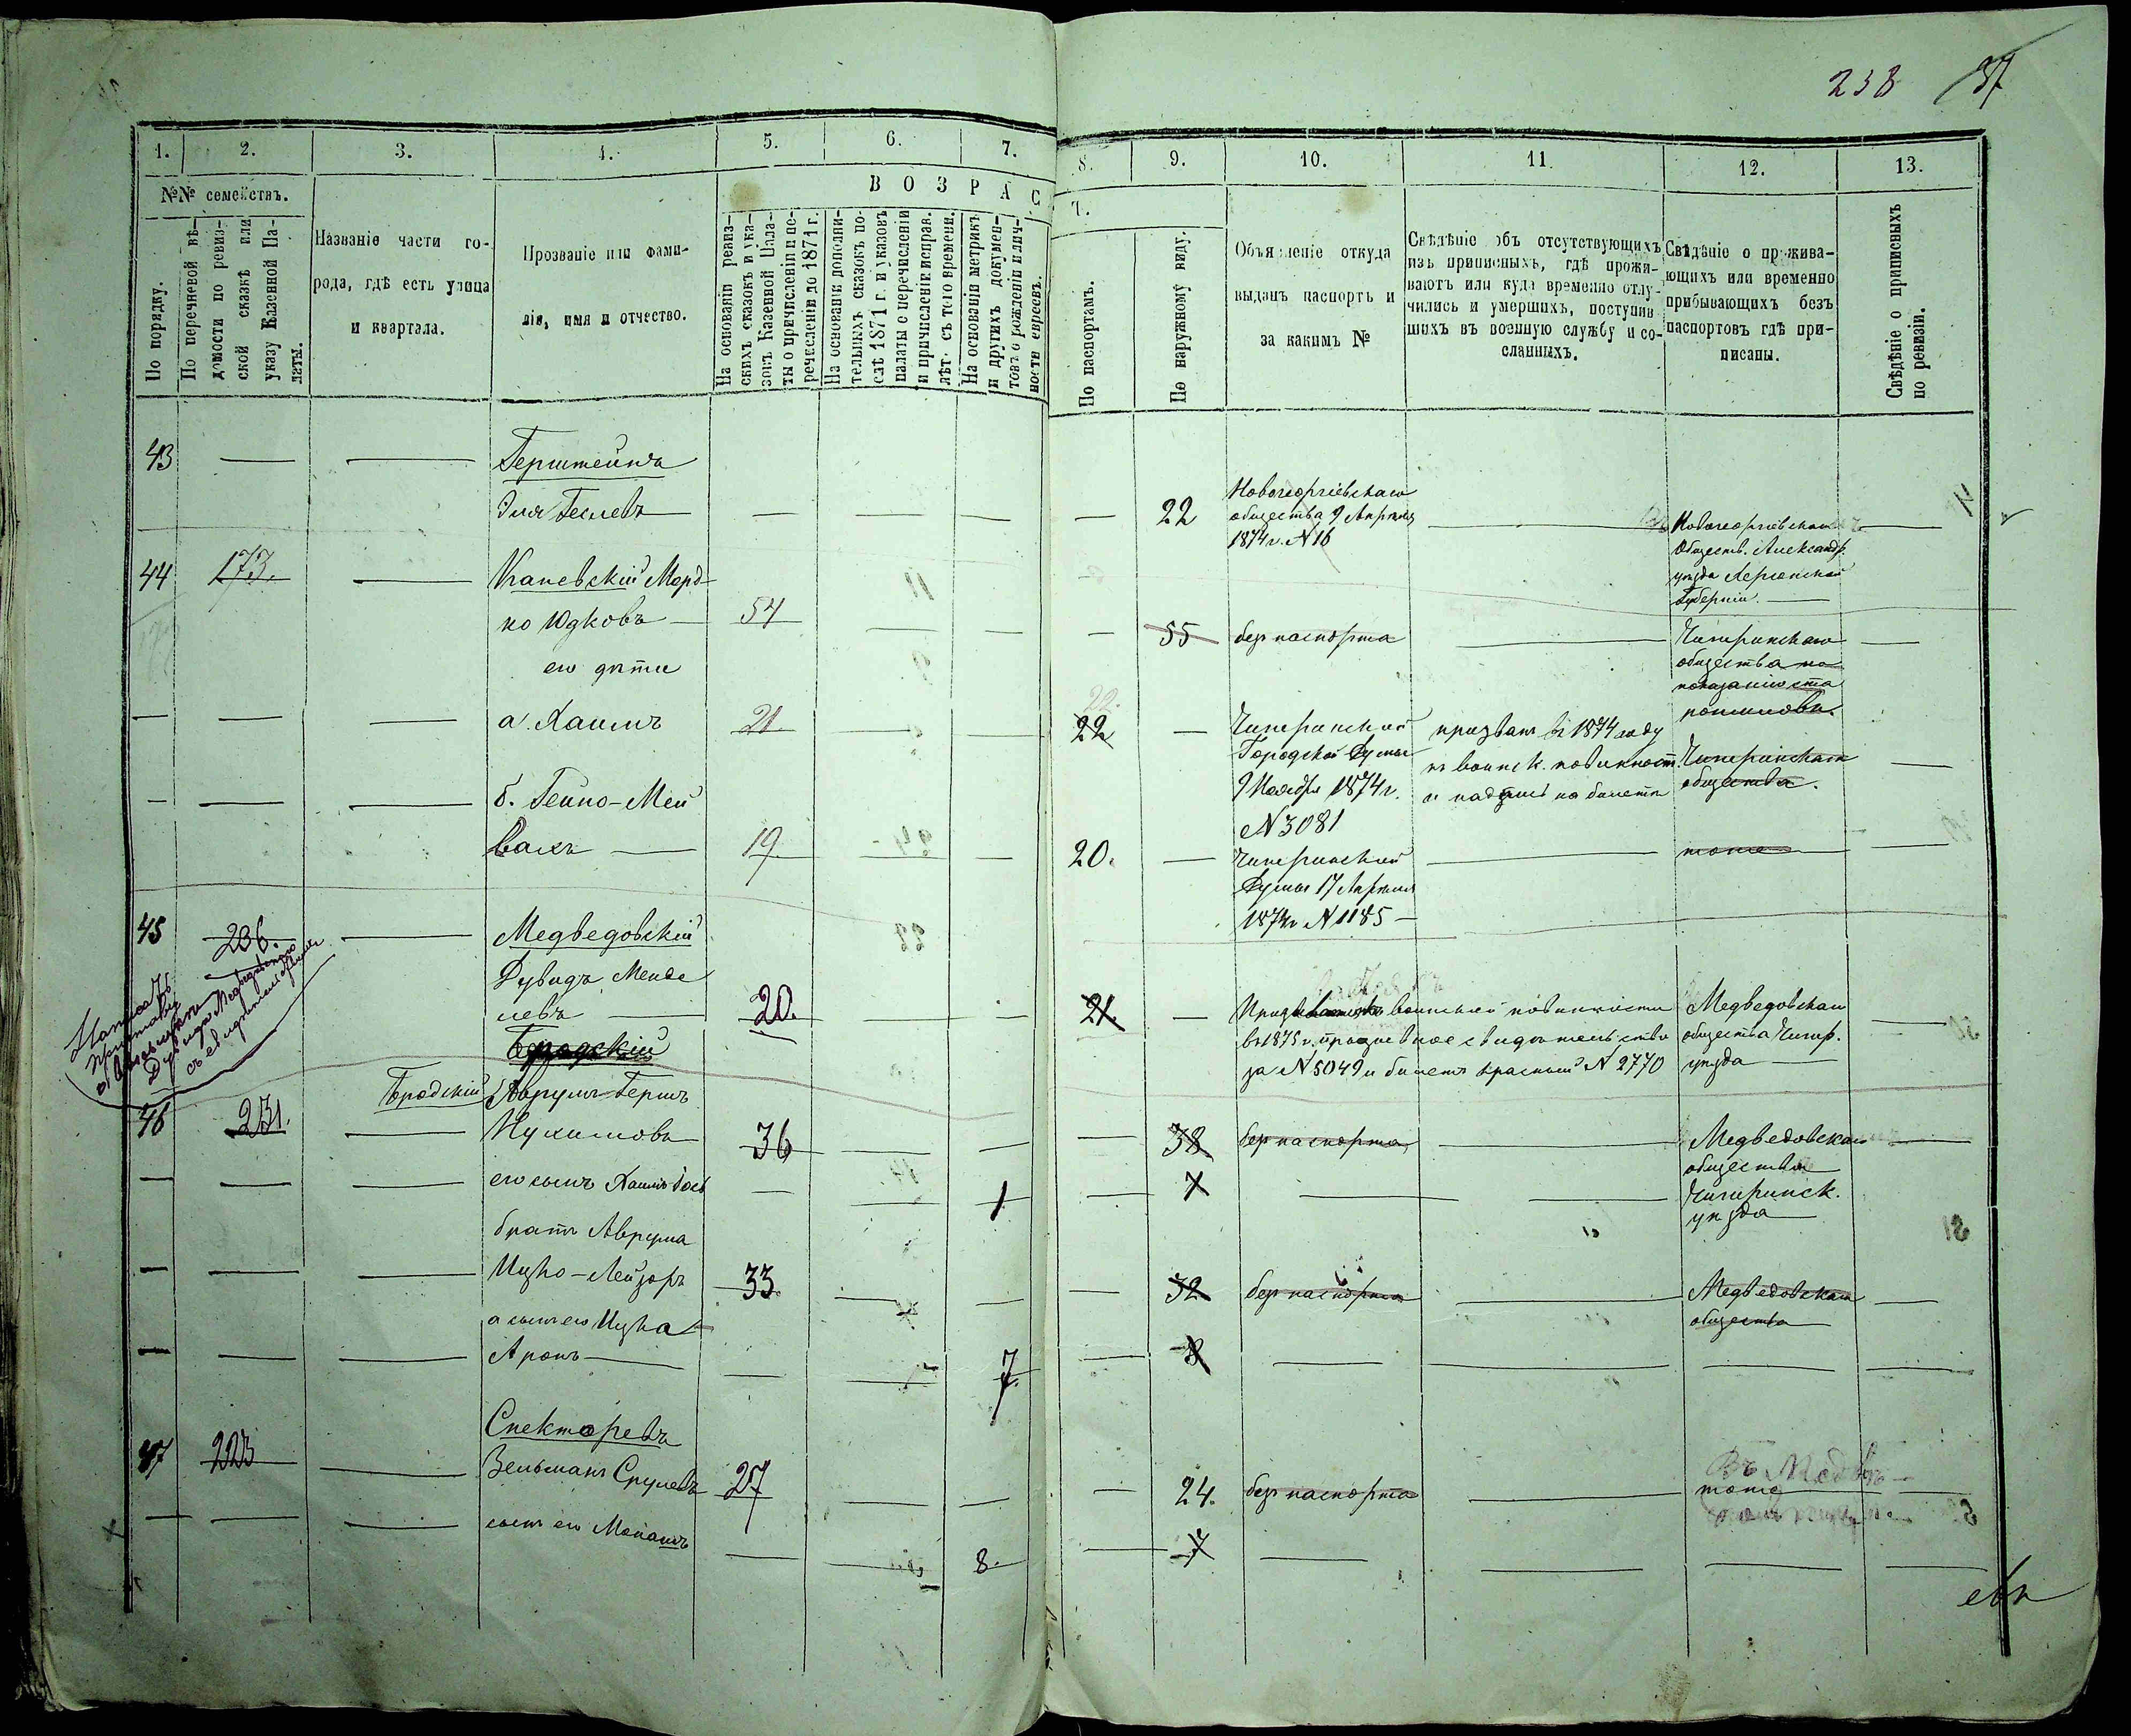 238 37
1. 2. 3. 4. 5. 6. 7. 8. 9. 10. 11. 12. 13.
№№ семействъ.
ВОЗРАС
Т.
По порядку.
По перечневой вѣ-
домости по ревиз-
ской сказкѣ или
указу Казенной Па-
латы.
Названіе части го-
рода, гдѣ есть улица
и квартала.
Прозваніе или фами-
лія, имя и отчество.
На основаніи ревиз-
скихъ сказокъ и ука-
зовъ Казенной Пала-
ты о причисленіи и пе-
речисленіи до 1871 г.
На основаніи дополни-
тельныхъ сказокъ по-
слѣ 1871 г. и указовъ
палаты о перечисленіи
и причисленіи исправ.
лѣт. съ того времени.
На основаніи метрикъ
и другихъ докумен-
товъ о рожденіи и лич-
ности евреевъ.
По паспортамъ.
По наружному виду.
Объясненіе откуда
выданъ паспортъ и
за какимъ №
Свѣдѣніе объ отсутствующихъ
изъ приписныхъ, гдѣ прожи-
ваютъ или куда временно отлу-
чились и умершихъ, поступив-
шихъ въ военную службу и со-
сланныхъ.
Свѣдѣніе о прожива-
ющихъ или временно
прибывающихъ безъ
паспортовъ гдѣ при-
писаны.
Свѣдѣніе о приписныхъ
по ревизіи.
43 Герштейнъ
Эля Геслевъ 22
Новогеоргіевскаго
общества 9 Апрѣля
1874 г. № 16
Новогеоргіевскаго
Обществ. Александр.
уѣзда Херсонской
Губерніи.
44 173. Каневскій Морд-
ко Юдковъ 54 55 без паспорта
Чигиринскаго
общества по
показанію ста
его дѣти
а. Хаимъ 21. 22. 22
Чигиринской
Городской Думы
9 Ноября 1874 г.
№ 3081
призван въ 1874 году
къ воинск. повинност.
и надпись на билетѣ
Чигиринскаго
общества.
б. Гейно-Мей
19. 20.
Чигиринской
Думы 17 Апрѣля
1874 г. № 1185
тоже
45 236. Медведовскій
Дувидъ Менде
левъ 20. 21.
воинской повинности
въ 1875 г. свидѣтельство
за № 5049 и билетъ красный № 2770
Медведовскаго
общества Чигир.
уѣзда
Дувида Медведовскаго
Бродскій
Бродскій Аврумъ-Гершъ
46 231. Нухимовъ 36 38 без паспорта
Медведовскаго
общества
Чигиринск.
уѣзда
его сынъ Хаимъ 1
братъ Аврума
Ицко-Лейзоръ 33. 32 без паспорта
Медведовскаго
общества
а сынъ его Ицка
Аронъ 7. 8
Спекторевъ
47 223 Зельманъ Срулевъ 27 24. без паспорта
тоже
сынъ его Монашъ 8. 7